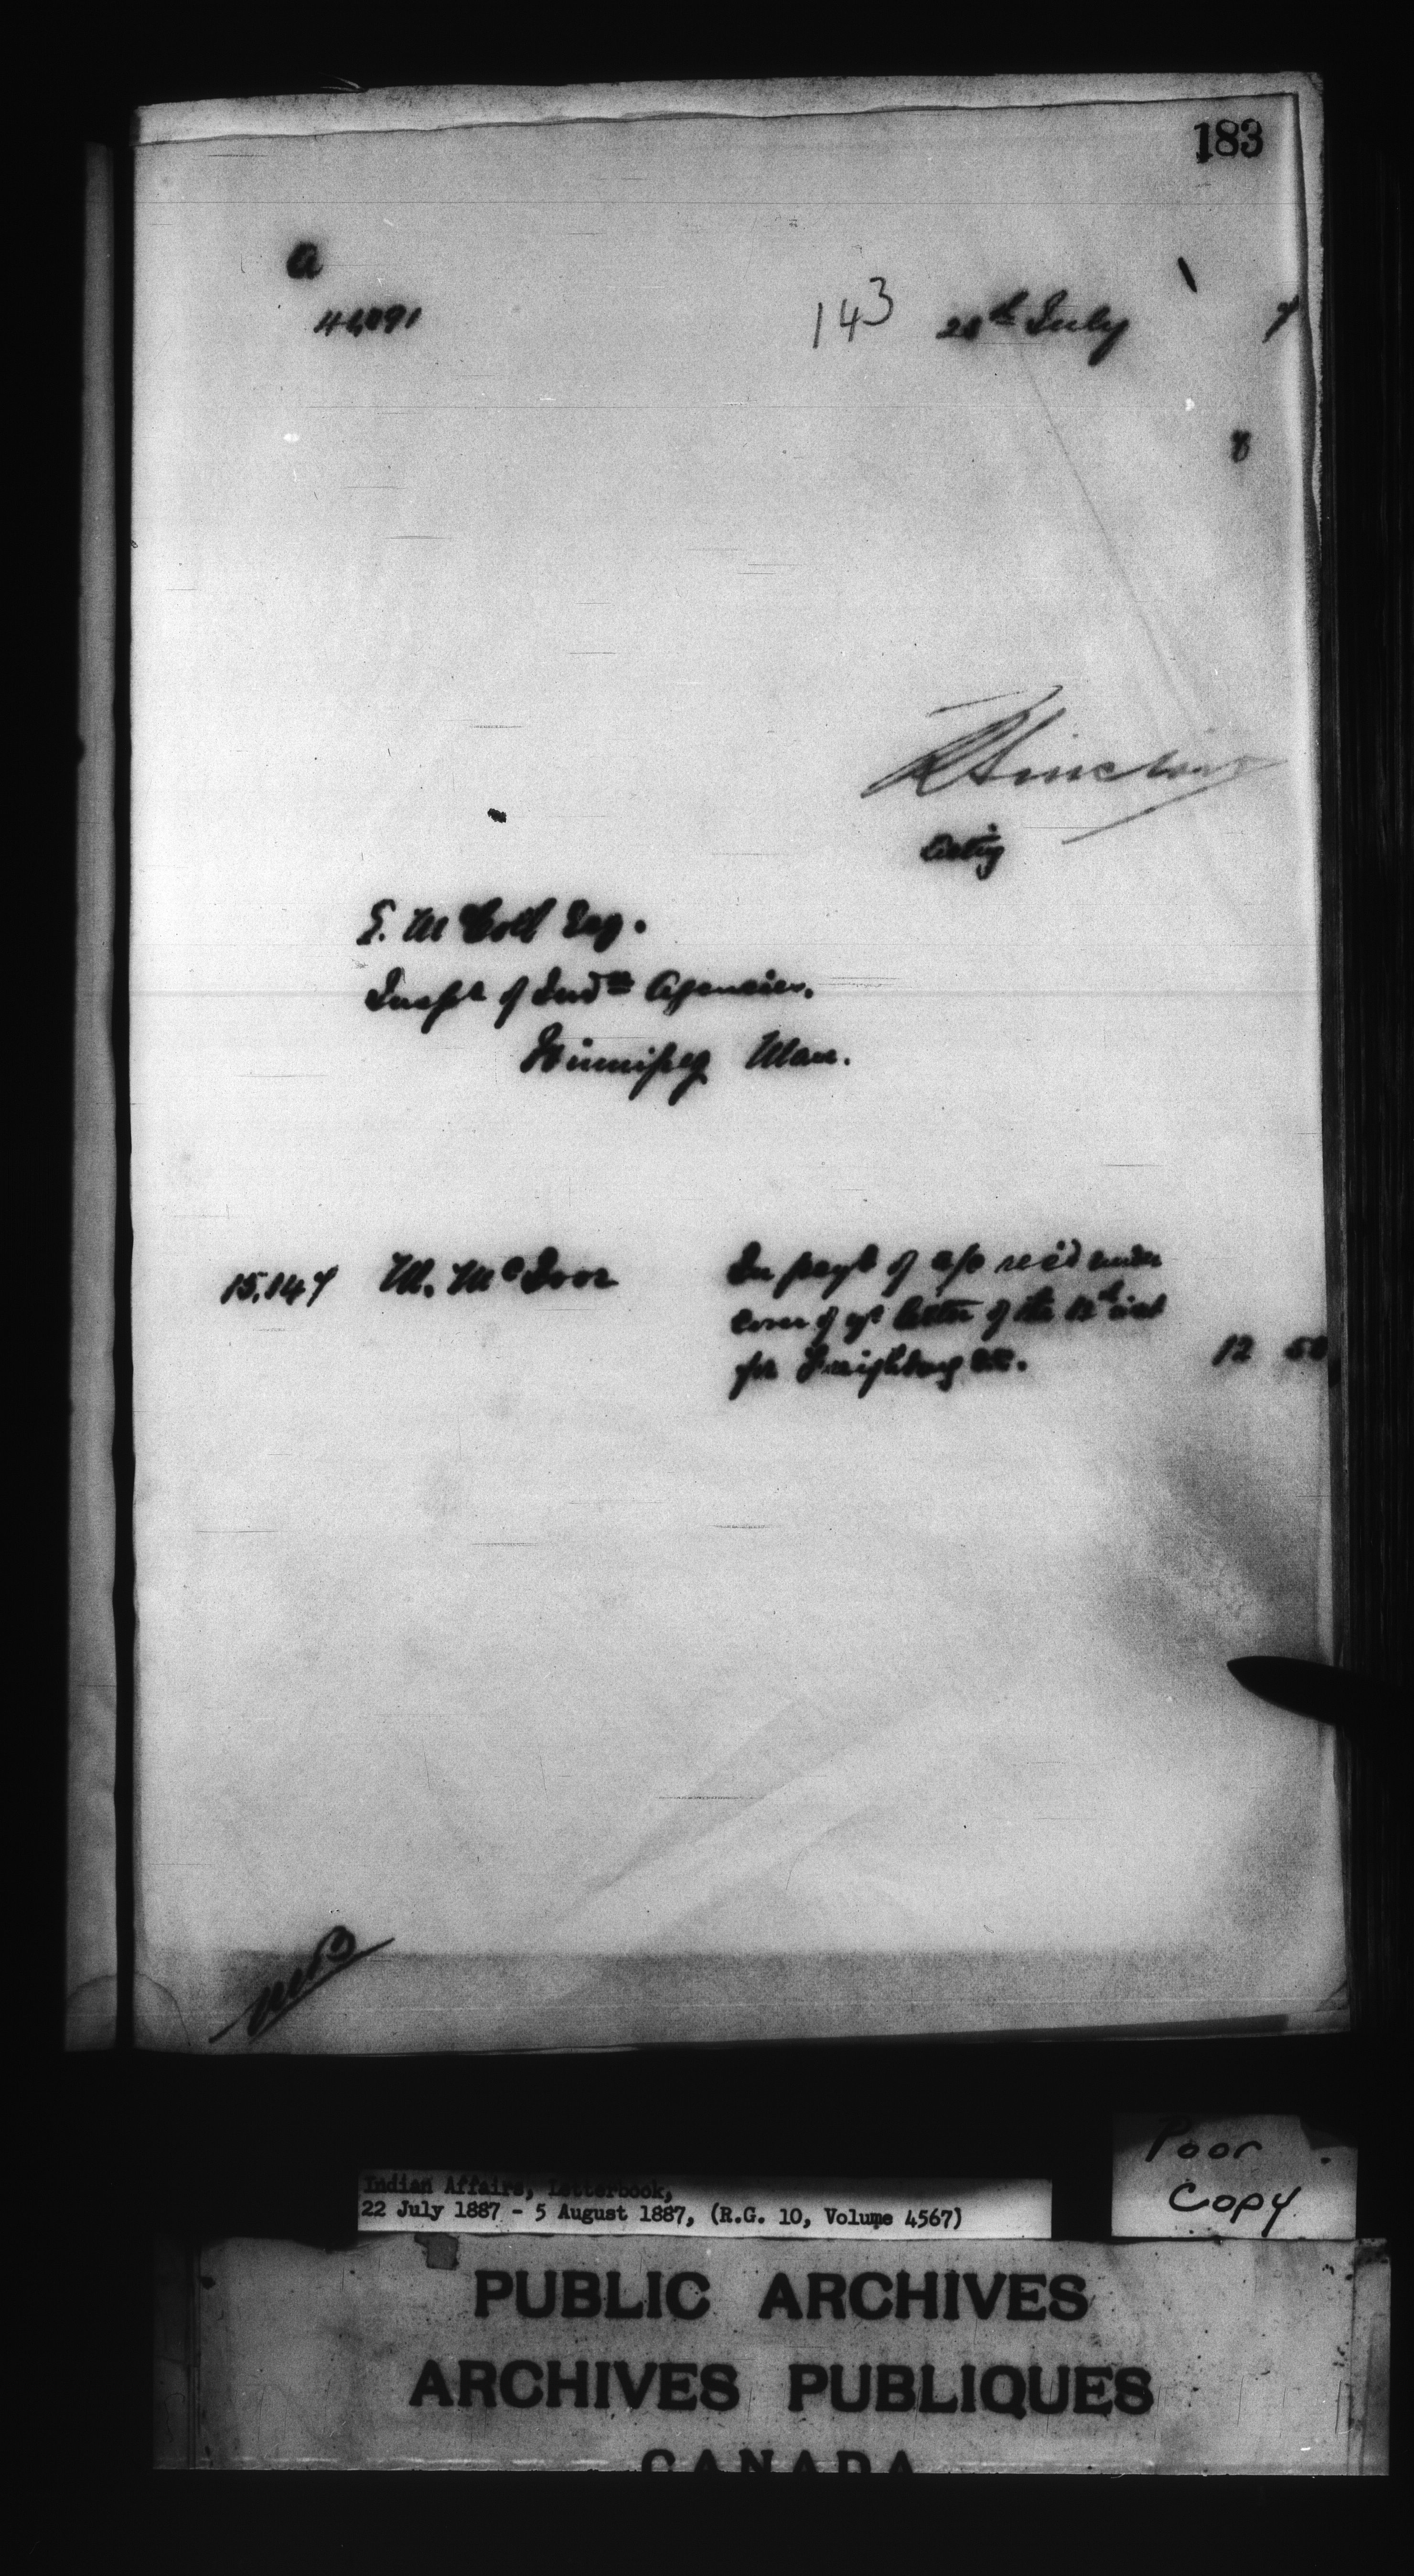 183
a
143 28th July 7
8
R Sinclair
Acting
E. McColl Esq.
Inspr of Indn Agencies.
Winnipeg Man.
15,147 M. McIvor In payt of a/c rec'd under
cover of yr letter of the 12th inst
for Freighting &c. 12 50
Indian Affairs, Letterbook,
22 July 1887 - 5 August 1887, (R.G. 10, Volume 4567)
Poor
Copy
PUBLIC ARCHIVES
ARCHIVES PUBLIQUES
CANADA